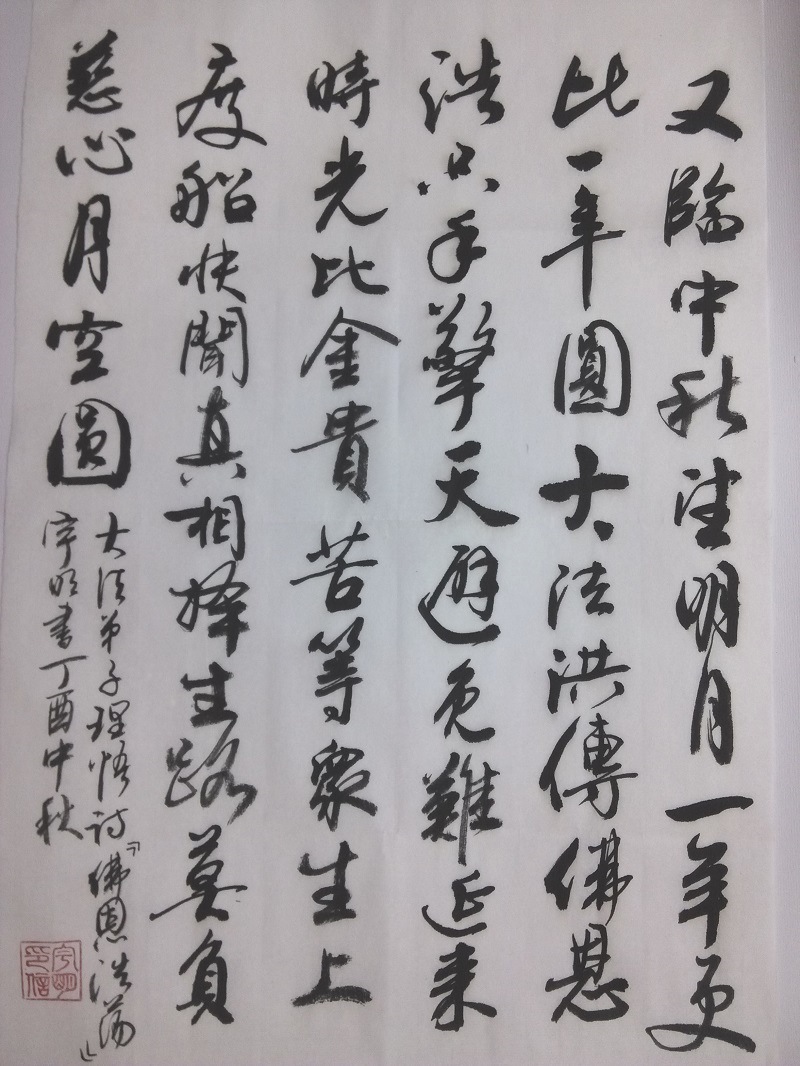 又臨中秋望明月一年更
比一年圓大法洪傳佛恩
浩只手擎天避免難延來
時光比金貴苦等眾生上
度船快聞真相擇生路莫負
慈心月空圓
大法弟子理悟詩『佛恩浩蕩』
宇明書丁酉中秋
宇明
印信